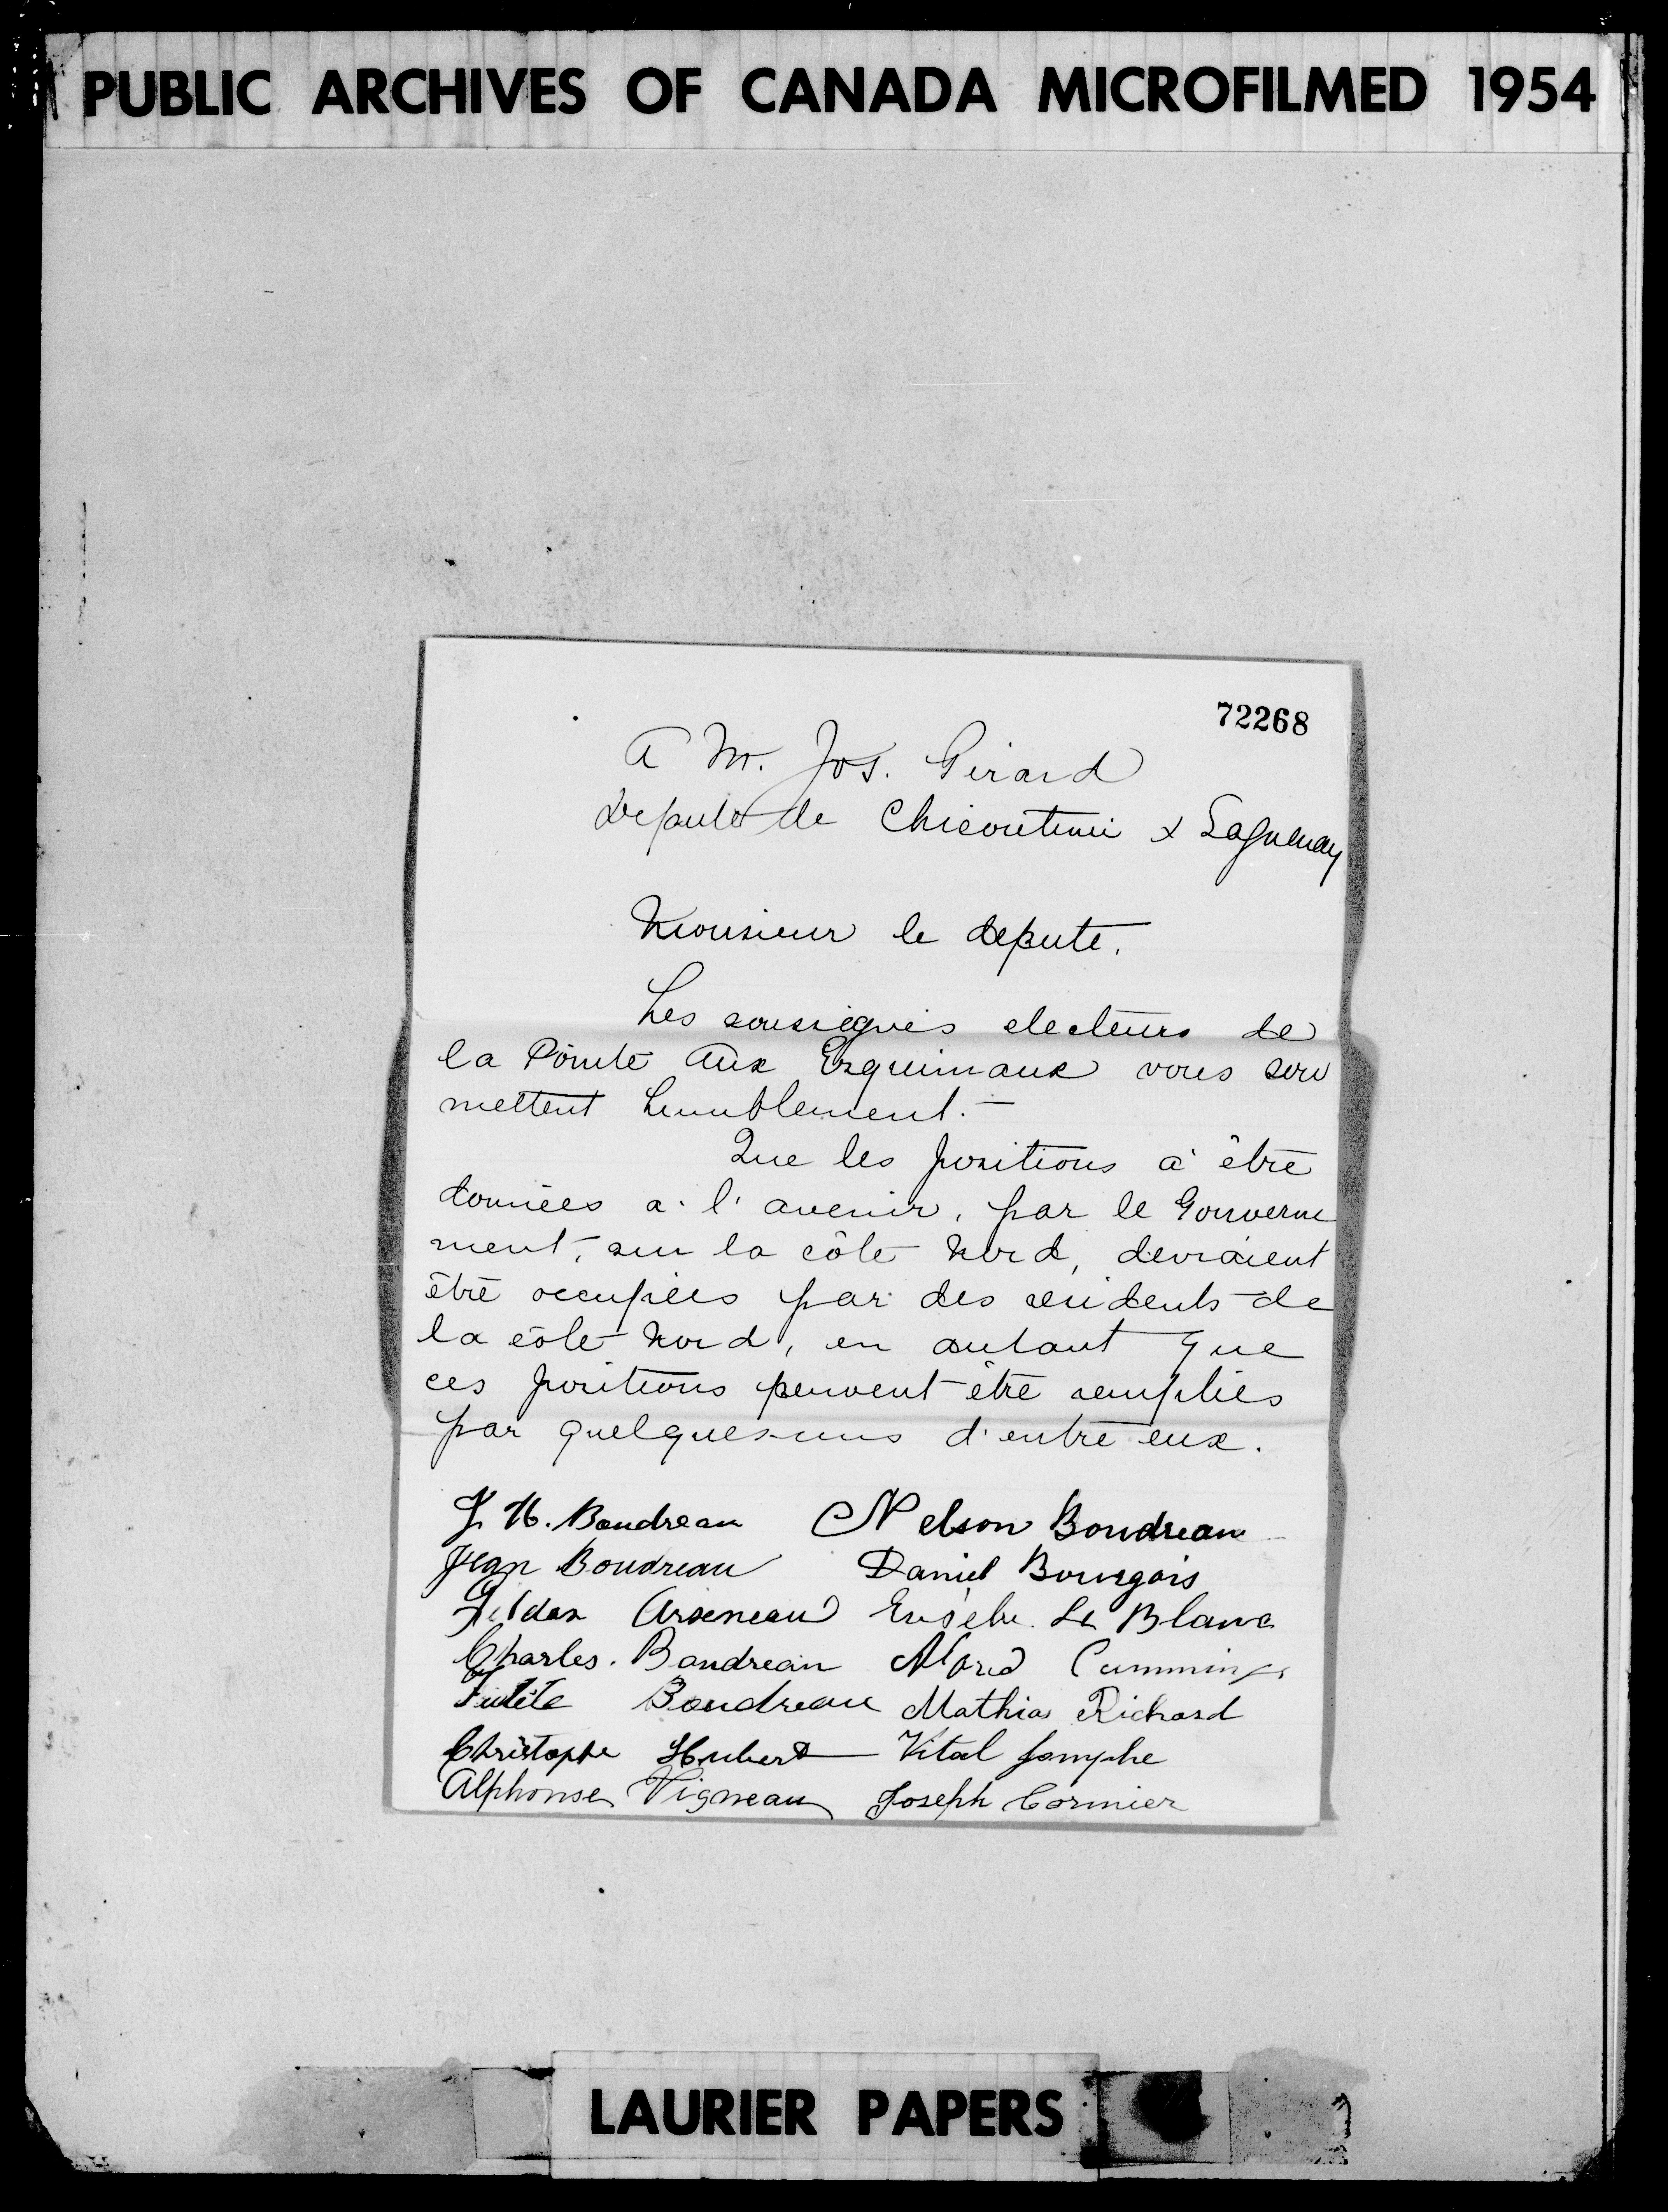 PUBLIC ARCHIVES OF CANADA MICROFILMED 1954
72268
A M. Jos. Girard
Depute de Chicoutimi & Saguenay
Monsieur le depute.
Les soussignés electeurs de
la Pointe Aux Esquimaux vous sou
mettent humblement.—
Que les positions à être
données a l'avenir, par le Gouverne
ment, sur la côte Nord, devraient
être occupées par des residents de
la côte Nord, en autant que
ces positions peuvent être remplies
par quelques-uns d'entre eux.
J. H. Boudreau Nelson Boudreau
Jean Boudreau Daniel Bourgois
Gildas Arseneau Eusèbe Le Blanc
Charles. Boudreau Cummings
Boudreau Mathias Richard
Christophe Hubert Vital
Alphonse Vigneau Joseph Cormier
LAURIER PAPERS